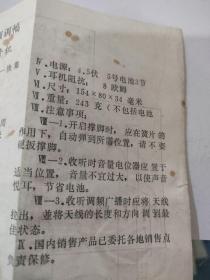 调幅
Ⅳ．电源：4.5伏 5号电池3节
Ⅴ．耳机阻抗： 8 欧姆
Ⅵ．尺寸：154×80×34 毫米
Ⅶ．重量：243 克（不包括电池
Ⅷ．注意事项：
Ⅷ—1．开启撑脚时，应在簧片的
作用下，自动弹到所需位置，请不要
硬扳撑脚。
Ⅷ—2．收听时音量电位器应置于
适当位置，音量不宜过大，以使声音
悦耳，节省电池。
Ⅷ—3．收听调频广播时应将天线
拉出，并将天线的长度和方向调到最
佳状态。
Ⅸ．国内销售产品已委托各地销售点
负责保修。